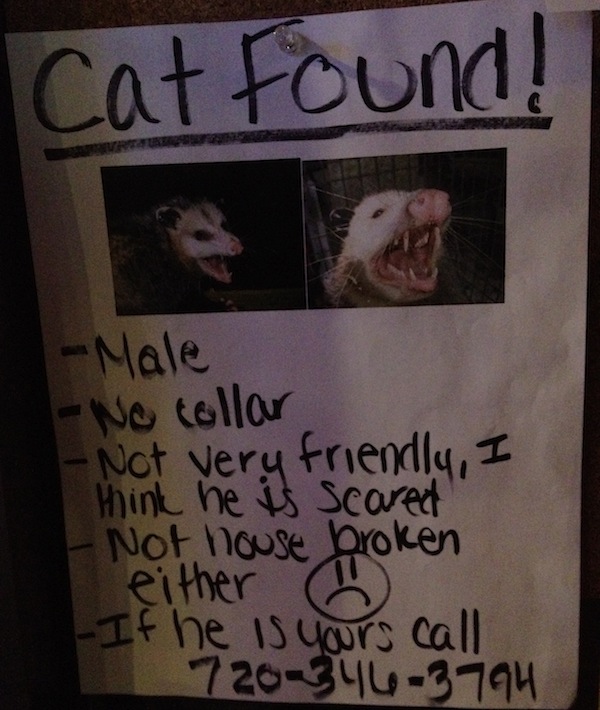 Cat Found!
- Male
- No collar
- Not very friendly, I
think he is scared
- Not house broken
either
- If he is yours call
720-346-3794